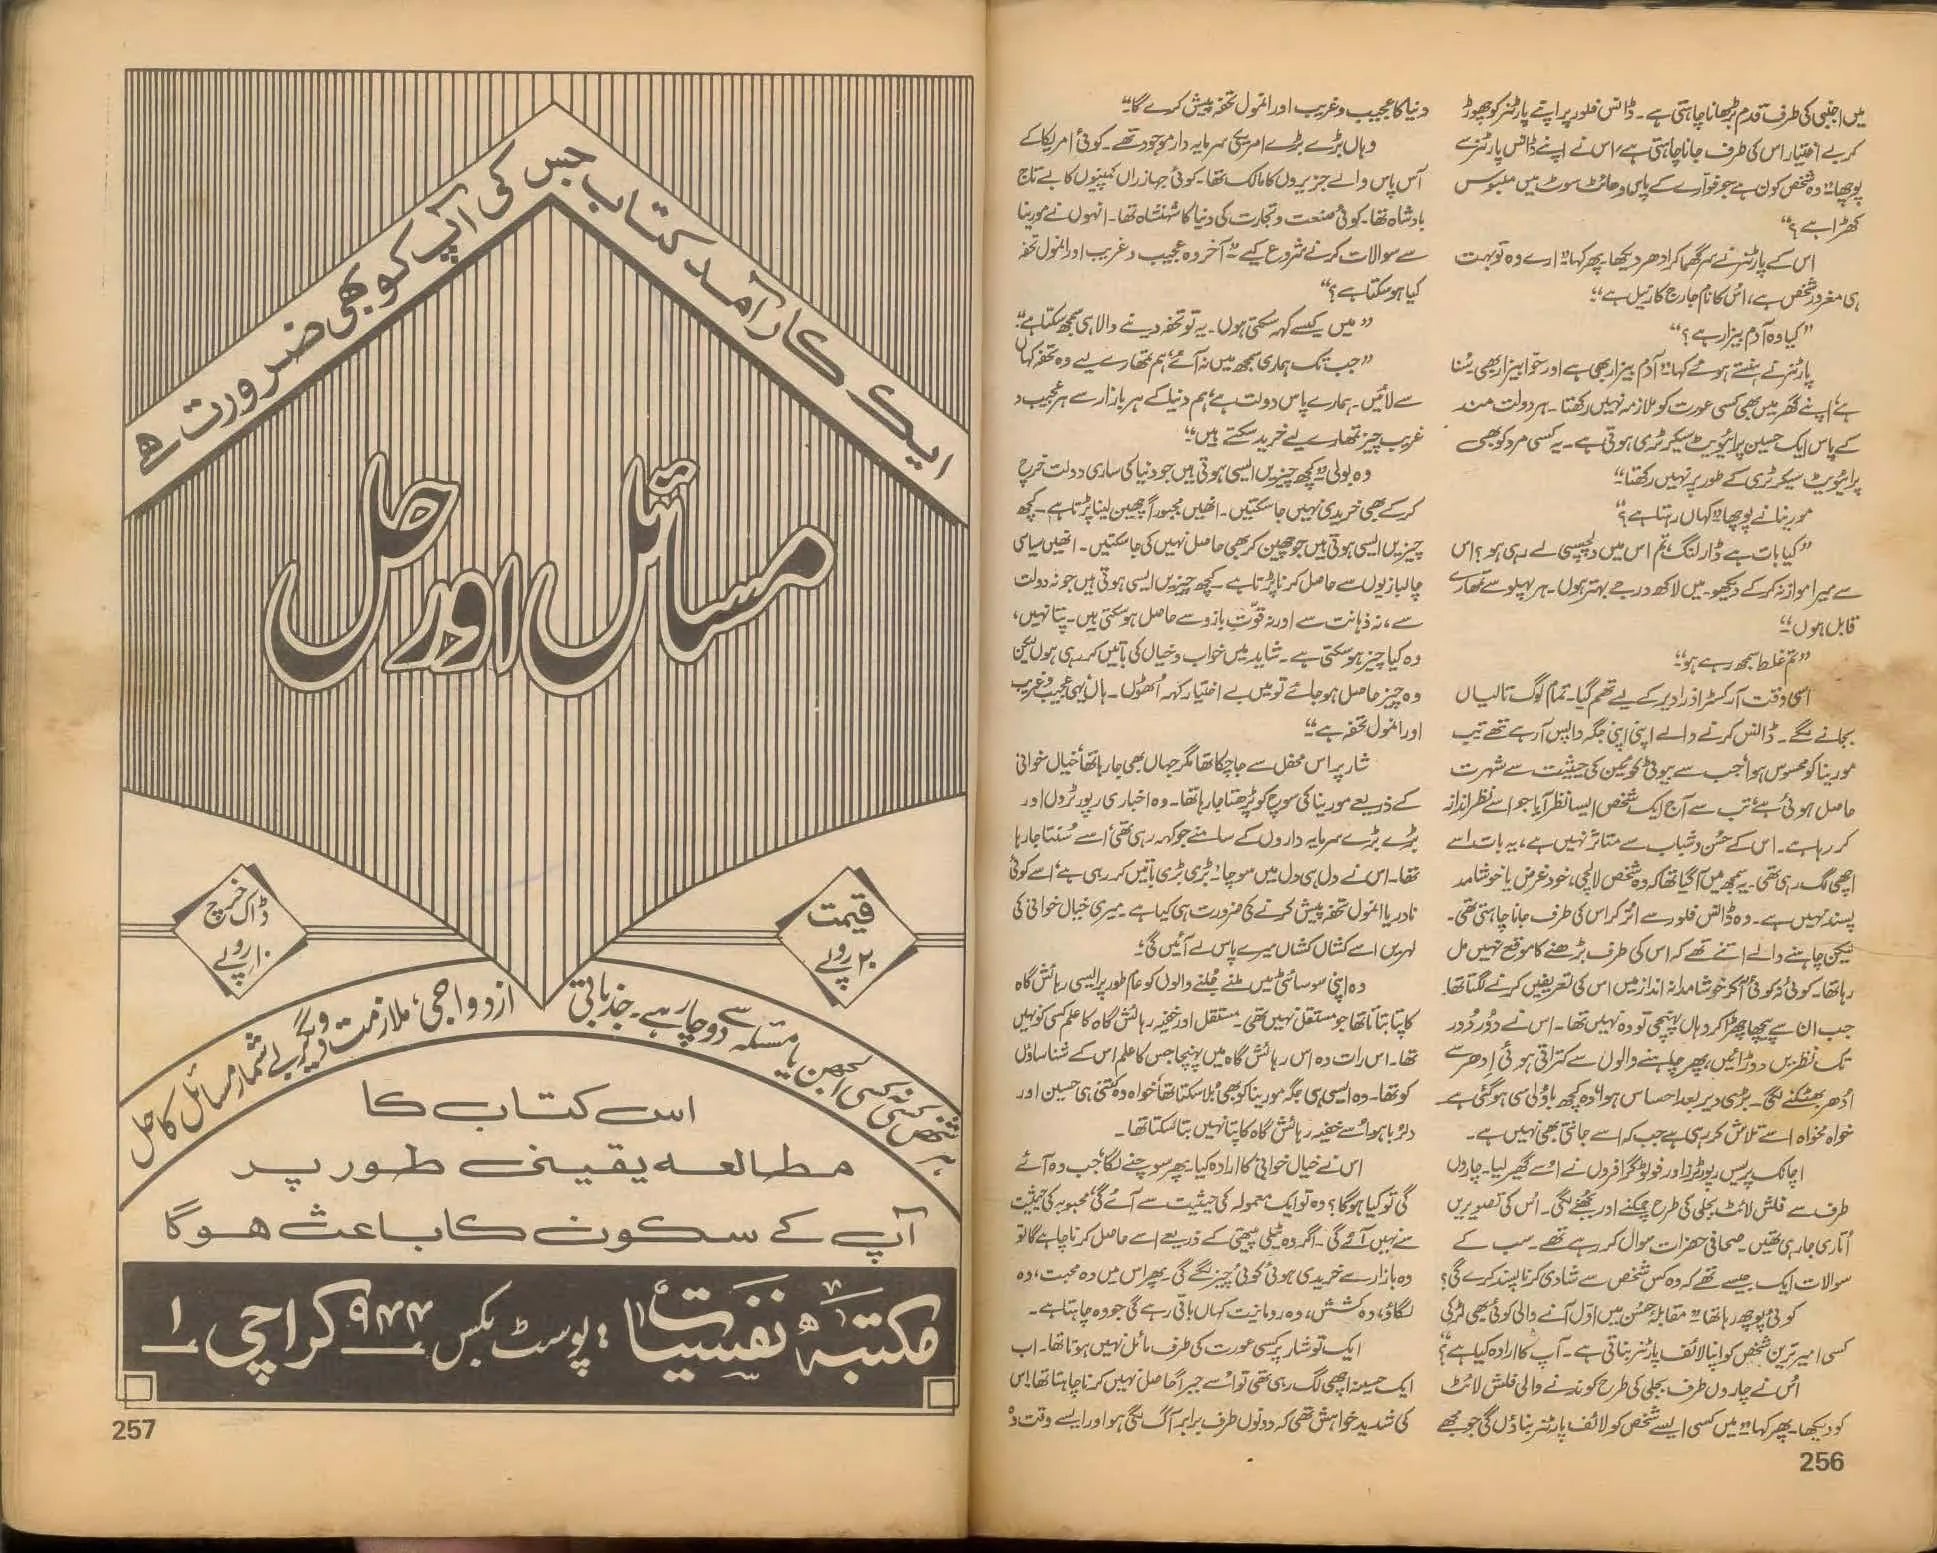 میں اجنبی کی طرف قدم بڑھانا چاہتی ہے۔ ڈانس فلور پر اپنے پارٹنر کو چھوڑ
کر بے اختیار اس کی طرف جانا چاہتی ہے، اس نے اپنے ڈانس پارٹنر سے
پوچھا "وہ شخص کون ہے جو فوارے کے پاس وہائٹ سوٹ میں ملبوس
کھڑا ہے؟"
اس کے پارٹنر نے سر گھما کر ادھر دیکھا۔ پھر کہا "ارے وہ تو بہت
ہی مغرور شخص ہے، اس کا نام جارج کارنیل ہے"
"کیا وہ آدم بیزار ہے؟"
پارٹنر نے ہنستے ہوئے کہا "آدم بیزار بھی ہے اور حوا بیزار بھی۔ سنا
ہے، اپنے گھر میں بھی کسی عورت کو ملازمہ نہیں رکھتا۔ ہر دولت مند
کے پاس ایک حسین پرائیویٹ سیکرٹری ہوتی ہے۔ یہ کسی مرد کو بھی
پرائیویٹ سیکرٹری کے طور پر نہیں رکھتا"
مورینا نے پوچھا "کہاں رہتا ہے؟"
"کیا بات ہے ڈارلنگ، تم اس میں دلچسپی لے رہی ہو؟ اس
سے میرا موازنہ کر کے دیکھو۔ میں لاکھ درجے بہتر ہوں۔ ہر پہلو سے تمھارے
قابل ہوں"
"تم غلط سمجھ رہے ہو"
اسی وقت آرکسٹرا ذرا دیر کے لیے تھم گیا۔ تمام لوگ تالیاں
بجانے لگے۔ ڈانس کرنے والے اپنی اپنی جگہ واپس آ رہے تھے تب
مورینا کو محسوس ہوا، جب سے بیوٹی کوئین کی حیثیت سے شہرت
حاصل ہوئی ہے، تب سے آج ایک شخص ایسا نظر آیا جو اسے نظر انداز
کر رہا ہے۔ اس کے حسن و شباب سے متاثر نہیں ہے، یہ بات اسے
اچھی لگ رہی تھی۔ یہ سمجھ میں آ گیا تھا کہ وہ شخص لالچی، خود غرض یا خوشامد
پسند نہیں ہے۔ وہ ڈانس فلور سے اتر کر اس کی طرف جانا چاہتی تھی۔
لیکن چاہنے والے اتنے تھے کہ اس کی طرف بڑھنے کا موقع نہیں مل
رہا تھا۔ کوئی نہ کوئی آ کر خوشامدانہ انداز میں اس کی تعریفیں کرنے لگتا تھا۔
جب ان سے پیچھا چھڑا کر وہاں پہنچی تو وہ نہیں تھا۔ اس نے دور دور
تک نظریں دوڑائیں، پھر چاہنے والوں سے کتراتی ہوئی اِدھر سے
اُدھر بھٹکنے لگی۔ بڑی دیر بعد احساس ہوا، وہ کچھ باؤلی سی ہو گئی ہے
خواہ مخواہ اسے تلاش کر رہی ہے جب کہ اسے جانتی بھی نہیں ہے۔
اچانک پریس رپورٹرز اور فوٹو گرافروں نے اُسے گھیر لیا۔ چاروں
طرف سے فلش لائٹ بجلی کی طرح چمکنے اور بجھنے لگی۔ اُس کی تصویریں
اُتاری جا رہی تھیں۔ صحافی حضرات سوال کر رہے تھے۔ سب کے
سوالات ایک جیسے تھے کہ وہ کس شخص سے شادی کرنا پسند کرے گی؟
کوئی پوچھ رہا تھا "مقابلۂ حسن میں اوّل آنے والی کوئی بھی لڑکی
کسی امیر ترین شخص کو اپنا لائف پارٹنر بناتی ہے۔ آپ کا ارادہ کیا ہے؟"
اُس نے چاروں طرف بجلی کی طرح کوندنے والی فلش لائٹ
کو دیکھا۔ پھر کہا "میں کسی ایسے شخص کو لائف پارٹنر بناؤں گی جو مجھے
256
دنیا کا عجیب و غریب اور انمول تحفہ پیش کرے گا"
وہاں بڑے بڑے امریکی سرمایہ دار موجود تھے۔ کوئی امریکا کے
آس پاس والے جزیروں کا مالک تھا۔ کوئی جہازراں کمپنیوں کا بے تاج
بادشاہ تھا۔ کوئی صنعت و تجارت کی دنیا کا شہنشاہ تھا۔ انہوں نے مورینا
سے سوالات کرنے شروع کیے "آخر وہ عجیب و غریب اور انمول تحفہ
کیا ہو سکتا ہے؟"
"میں کیسے کہہ سکتی ہوں۔ یہ تو تحفہ دینے والا ہی سمجھ سکتا ہے"
"جب تک ہماری سمجھ میں نہ آئے، ہم تمھارے لیے وہ تحفہ کہاں
سے لائیں۔ ہمارے پاس دولت ہے، ہم دنیا کے ہر بازار سے ہر عجیب و
غریب چیز تمھارے لیے خرید سکتے ہیں"
وہ بولی "کچھ چیزیں ایسی ہوتی ہیں جو دنیا کی ساری دولت خرچ
کر کے بھی خریدی نہیں جا سکتیں۔ انھیں مجبوراً چھین لینا پڑتا ہے۔ کچھ
چیزیں ایسی ہوتی ہیں جو چھین کر بھی حاصل نہیں کی جا سکتیں۔ انھیں سیاسی
چالبازیوں سے حاصل کرنا پڑتا ہے۔ کچھ چیزیں ایسی ہوتی ہیں جو نہ دولت
سے، نہ ذہانت سے اور نہ قوّتِ بازو سے حاصل ہو سکتی ہیں۔ پتا نہیں،
وہ کیا چیز ہو سکتی ہے۔ شاید میں خواب و خیال کی باتیں کر رہی ہوں لیکن
وہ چیز حاصل ہو جائے تو میں بے اختیار کہہ اُٹھوں۔ ہاں یہی عجیب و غریب
اور انمول تحفہ ہے"
شارپر اس محفل سے جا چکا تھا مگر جہاں بھی جا رہا تھا، خیال خوانی
کے ذریعے مورینا کی سوچ کو پڑھتا جا رہا تھا۔ وہ اخباری رپورٹروں اور
بڑے بڑے سرمایہ داروں کے سامنے جو کہہ رہی تھی، اسے سُنتا جا رہا
تھا۔ اس نے دل ہی دل میں سوچا، بڑی بڑی باتیں کر رہی ہے، اسے کوئی
نادر یا انمول تحفہ پیش کرنے کی ضرورت ہی کیا ہے۔ میری خیال خوانی کی
لہریں اسے کشاں کشاں میرے پاس لے آئیں گی۔
وہ اپنی سوسائٹی میں ملنے جلنے والوں کو عام طور پر ایسی رہائش گاہ
کا پتا بتاتا تھا جو مستقل نہیں تھی۔ مستقل اور خفیہ رہائش گاہ کا علم کسی کو نہیں
تھا۔ اس رات وہ اس رہائش گاہ میں پہنچا جس کا علم اس کے شناساؤں
کو تھا۔ وہ ایسی ہی جگہ مورینا کو بھی بُلا سکتا تھا، خواہ وہ کتنی ہی حسین اور
دلربا ہو، اُسے خفیہ رہائش گاہ کا پتا نہیں بتا سکتا تھا۔
اس نے خیال خوانی کا ارادہ کیا۔ پھر سوچنے لگا، جب وہ آئے
گی تو کیا ہوگا؟ وہ تو ایک معمولہ کی حیثیت سے آئے گی، محبوبہ کی حیثیت
سے نہیں آئے گی۔ اگر وہ ٹیلی پیتھی کے ذریعے اسے حاصل کرنا چاہے گا تو
وہ بازار سے خریدی ہوئی کوئی چیز لگے گی۔ پھر اس میں وہ محبت، وہ
لگاؤ، وہ کشش، وہ رومانیت کہاں باقی رہے گی جو وہ چاہتا ہے۔
ایک تو شارپر کسی عورت کی طرف مائل نہیں ہوتا تھا۔ اب
ایک حسینہ اچھی لگ رہی تھی تو اُسے جبراً حاصل نہیں کرنا چاہتا تھا۔ اس
کی شدید خواہش تھی کہ دونوں طرف برابر آگ لگی ہو اور ایسے وقت وہ
ایک کارآمد کتاب جس کی آپ کو بھی ضرورت ہے
مسائل اور حل
قیمت
۲۰ روپے
ڈاک خرچ
۱۰ روپے
ہر شخص کسی نہ کسی الجھن یا مسئلہ سے دوچار ہے۔ جذباتی
ازدواجی، ملازمت و دیگر بے شمار مسائل کا حل
اس کتاب کا
مطالعہ یقینی طور پر
آپ کے سکون کا باعث ہوگا
مکتبہ نفسیات : پوسٹ بکس ۹۴۴ کراچی ۱
257